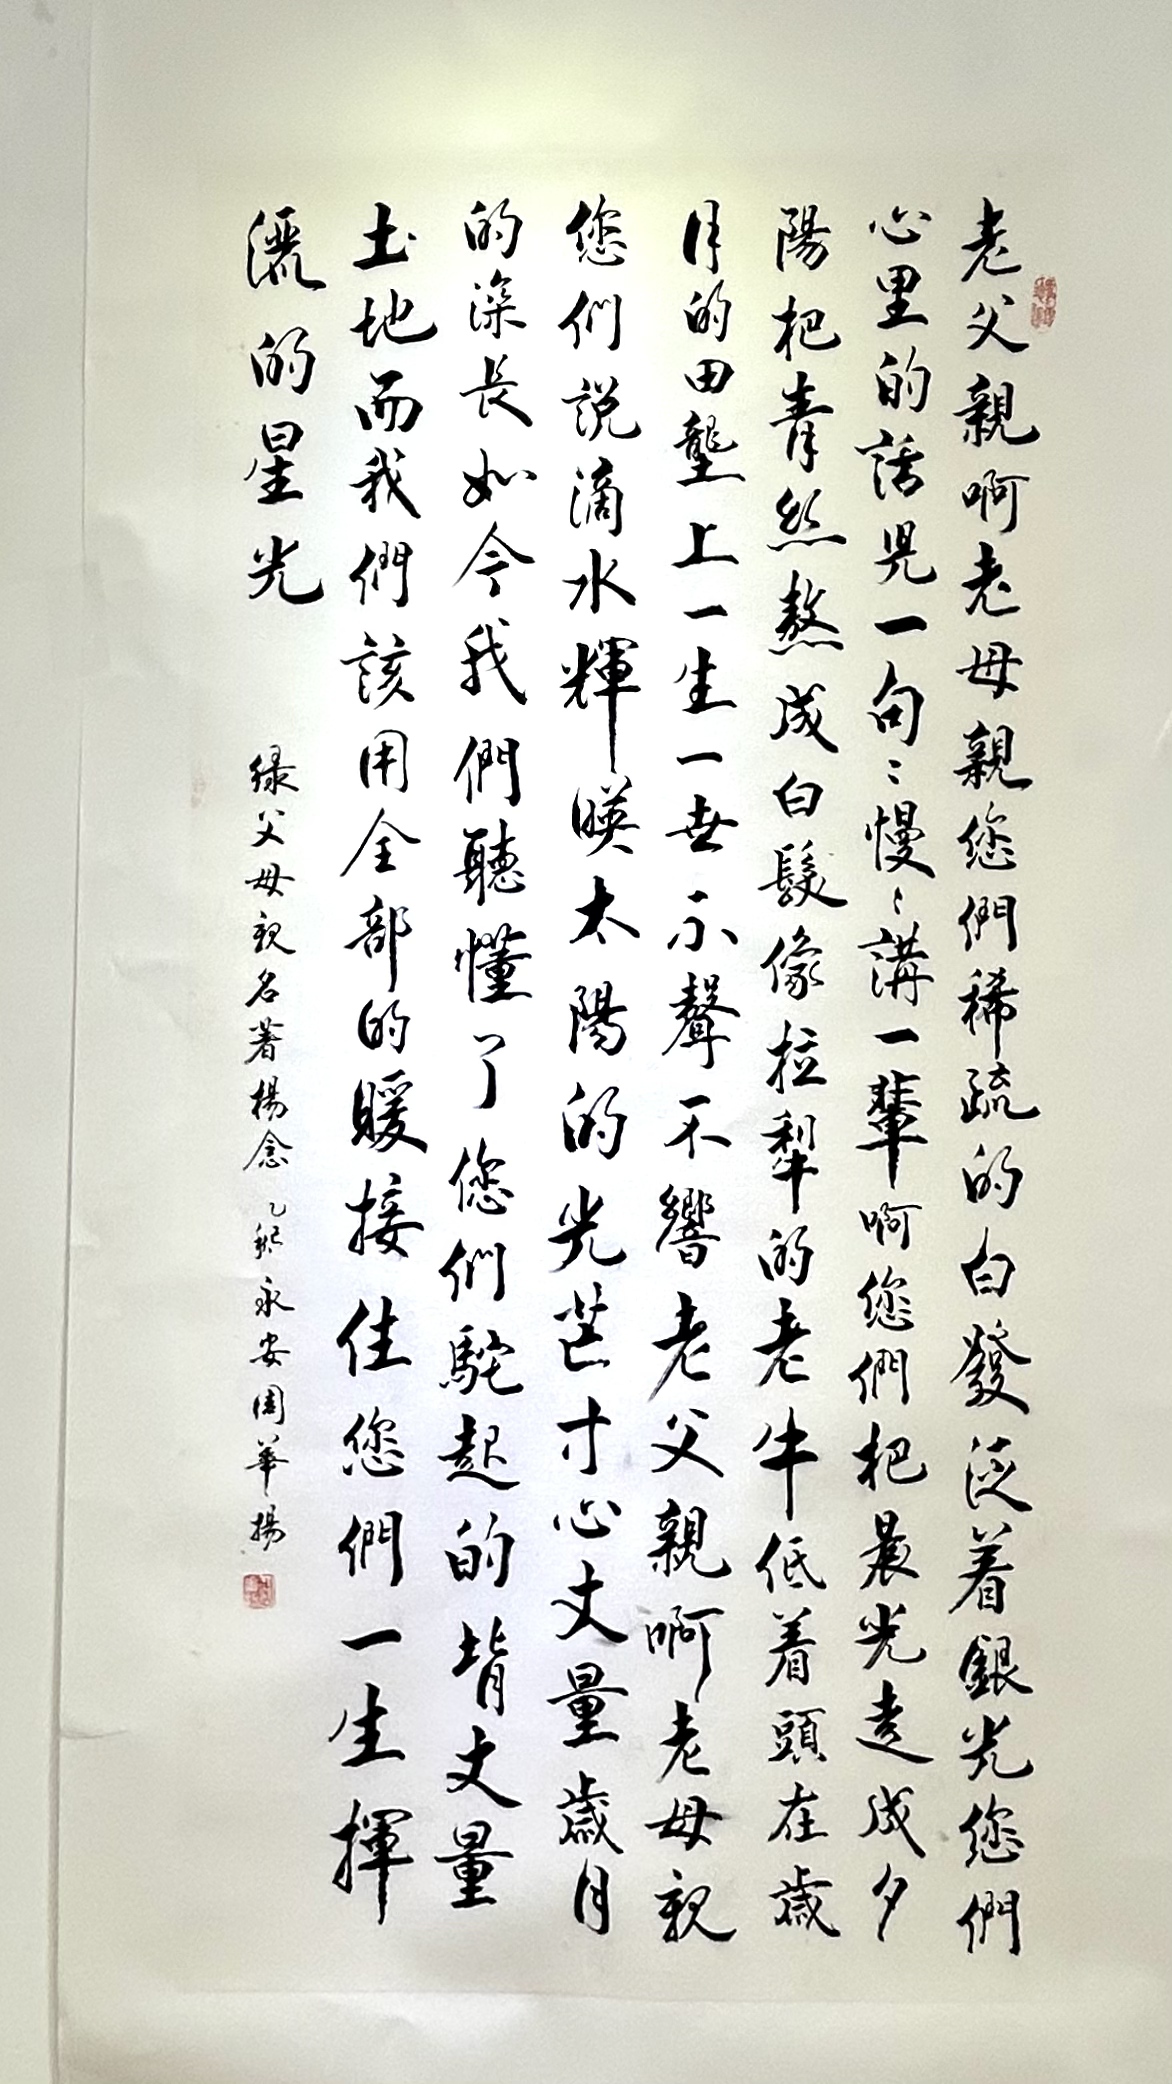 老父親啊老母親您們稀疏的白發泛着銀光您們
心里的話児一句〻慢〻講一輩啊您們把晨光走成夕
陽把青絲熬成白髮像拉犁的老牛低着頭在歲
月的田壟上一生一世不聲不響老父親啊老母親
您們説滴水輝暎太陽的光芒寸心丈量歲月
的深長如今我們聽懂了您們駝起的背丈量
土地而我們該用全部的暖接住您們一生揮
灑的星光
緑父母親名著楊念 乙巳永安周華揚